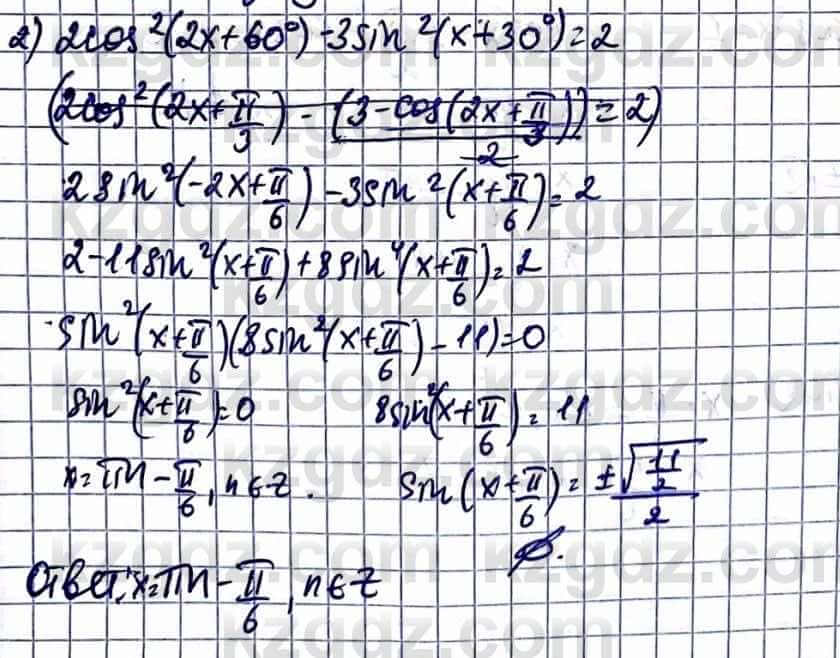 2) 2cos²(2x+60°)-3sin²(x+30°)=2
(2cos²(2x+π/3) - (3-cos(2x+π/3))/2 = 2)
2sin²(-2x+π/6)-3sin²(x+π/6)=2
2-11sin²(x+π/6)+8sin⁴(x+π/6)=2
sin²(x+π/6)(8sin²(x+π/6)-11)=0
sin²(x+π/6)=0 8sin²(x+π/6)=11
x=πn-π/6, n∈Z. sin(x+π/6)=±√(11/2)/2
∅.
Ответ: x=πn-π/6, n∈Z
kzgdz.com